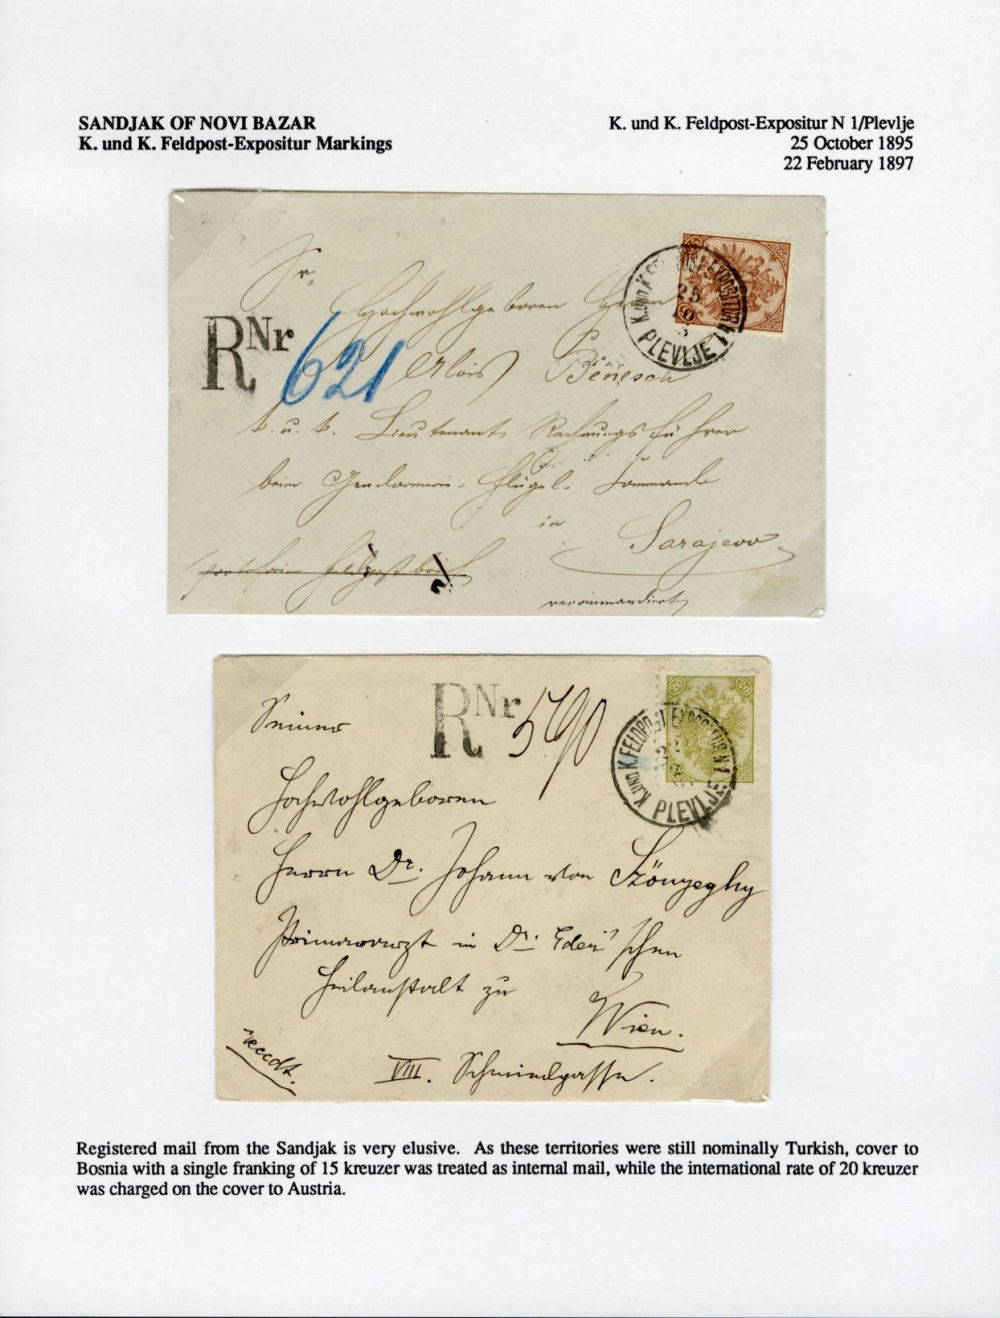 SANDJAK OF NOVI BAZAR
K. und K. Feldpost-Expositur Markings
K. und K. Feldpost-Expositur N 1/Plevlje
25 October 1895
22 February 1897
Sr.
Hochwohlgeboren Herrn
R Nr 621
Alois Benesch
k. u. k. Lieutenant Rechnungsführer
beim Gendarmerie-Flügel-Commando
in
Sarajevo
portofreier Feldpostbrief
recommandirt
K. UND K. FELDPOST-EXPOSITUR N 1
25
PLEVLJE
R Nr 590
Seiner
Hochwohlgeboren
Herrn Dr. Johann von Szönyeghy
Primararzt in Dr. Eder'schen
Heilanstalt zu
Wien.
VIII. Schmiedgasse.
recdt.
K. UND K. FELDPOST-EXPOSITUR N 1
PLEVLJE
20
Registered mail from the Sandjak is very elusive. As these territories were still nominally Turkish, cover to
Bosnia with a single franking of 15 kreuzer was treated as internal mail, while the international rate of 20 kreuzer
was charged on the cover to Austria.